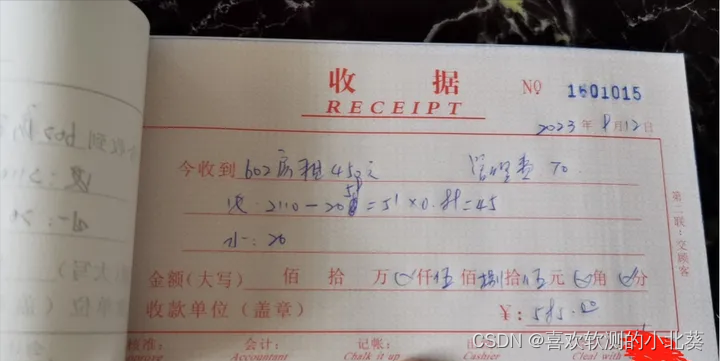 收 据
RECEIPT
NO 1601015
2023年8月12日
今收到 602房租450元 管理费 70
2110-2059=51×0.88=45
水:20
金额(大写) 佰 拾 万 0仟伍佰捌拾伍元0角0分
收款单位(盖章) ¥:585.00
核准: 会计: 记帐:
Accountant Chalk it up Cashier Deal with
第二联:交顾客
今收到 602房
:20
(大写)
CSDN @喜欢软测的小北葵